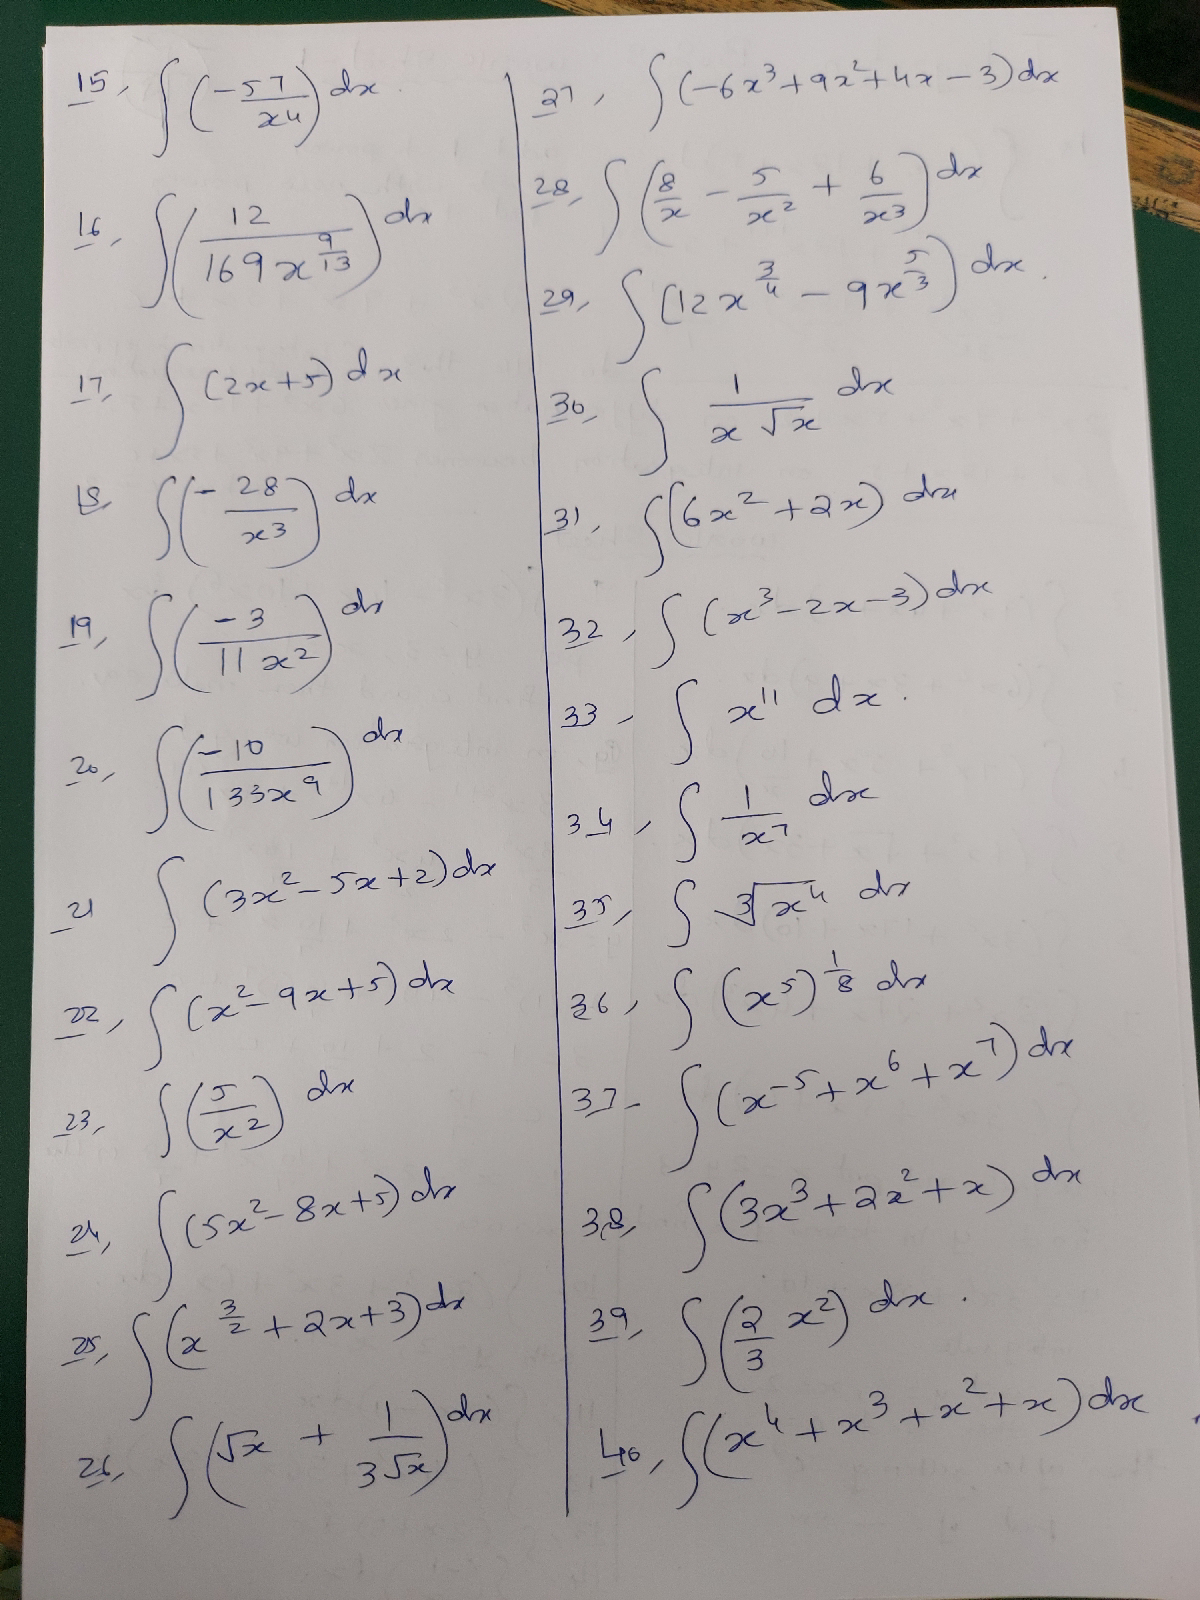 15, ∫(-57/x⁴) dx
16, ∫(12/169x^(9/13)) dx
17, ∫(2x+5) dx
18, ∫(-28/x³) dx
19, ∫(-3/11x²) dx
20, ∫(-10/133x⁹) dx
21 ∫(3x²-5x+2) dx
22, ∫(x²-9x+5) dx
23, ∫(5/x²) dx
24, ∫(5x²-8x+5) dx
25, ∫(x^(3/2)+2x+3) dx
26, ∫(√x + 1/3√x) dx
27, ∫(-6x³+9x²+4x-3) dx
28, ∫(8/x - 5/x² + 6/x³) dx
29, ∫(12x^(3/4) - 9x^(5/3)) dx.
30, ∫ 1/x√x dx
31, ∫(6x²+2x) dx
32, ∫(x³-2x-3) dx
33, ∫ x¹¹ dx.
34, ∫ 1/x⁷ dx
35, ∫ ∛x⁴ dx
36, ∫(x⁵)^(1/8) dx
37- ∫(x⁻⁵+x⁶+x⁷) dx
38, ∫(3x³+2x²+x) dx
39, ∫(2/3 x²) dx.
40, ∫(x⁴+x³+x²+x) dx